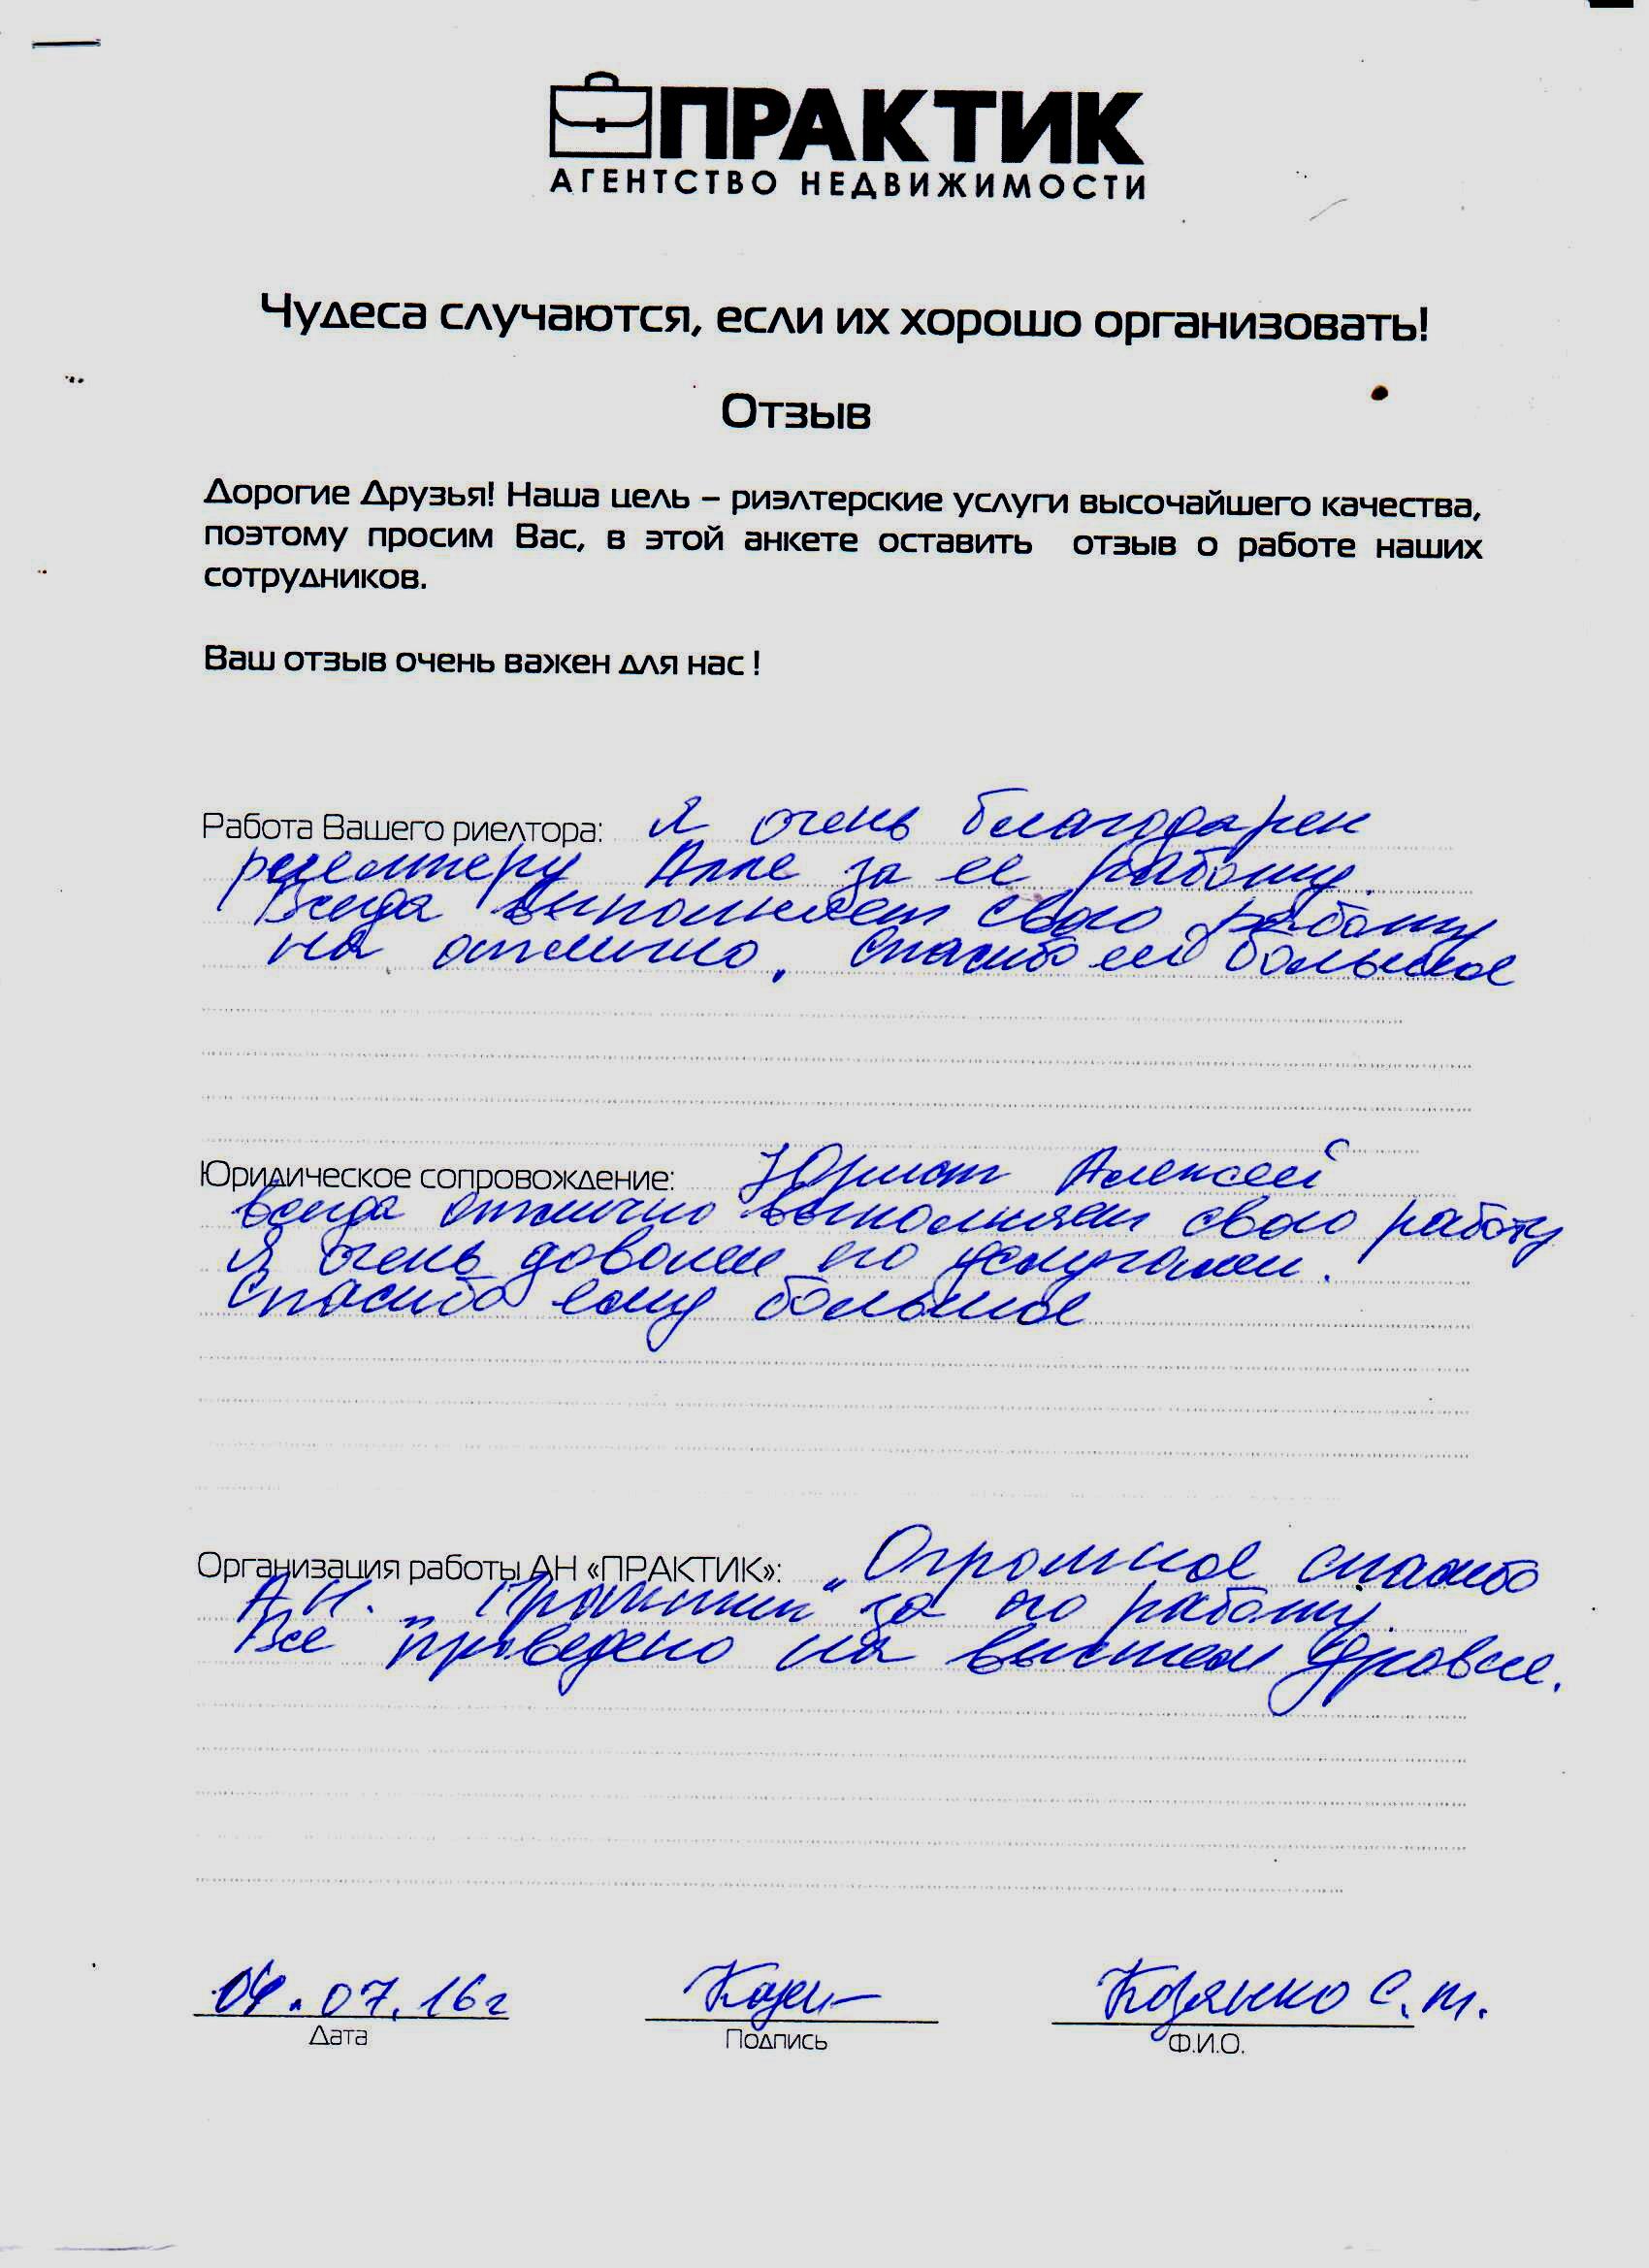 ПРАКТИК
АГЕНТСТВО НЕДВИЖИМОСТИ
Чудеса случаются, если их хорошо организовать!
Отзыв
Дорогие Друзья! Наша цель – риэлтерские услуги высочайшего качества,
поэтому просим Вас, в этой анкете оставить отзыв о работе наших
сотрудников.
Ваш отзыв очень важен для нас !
Работа Вашего риелтора: Я очень благодарен
Алле за ее работу.
Всегда выполняет свою работу
на отлично. Спасибо ей большое
Юридическое сопровождение: Юрист Алексей
всегда отлично выполняет свою работу
Я очень доволен его услугами.
Спасибо ему большое
Организация работы АН «ПРАКТИК»: „Огромное спасибо
А.Н. „Практик" за его работу
Все проведено на высшем уровне.
04.07.16г
Дата
Подпись
С.
Ф.И.О.